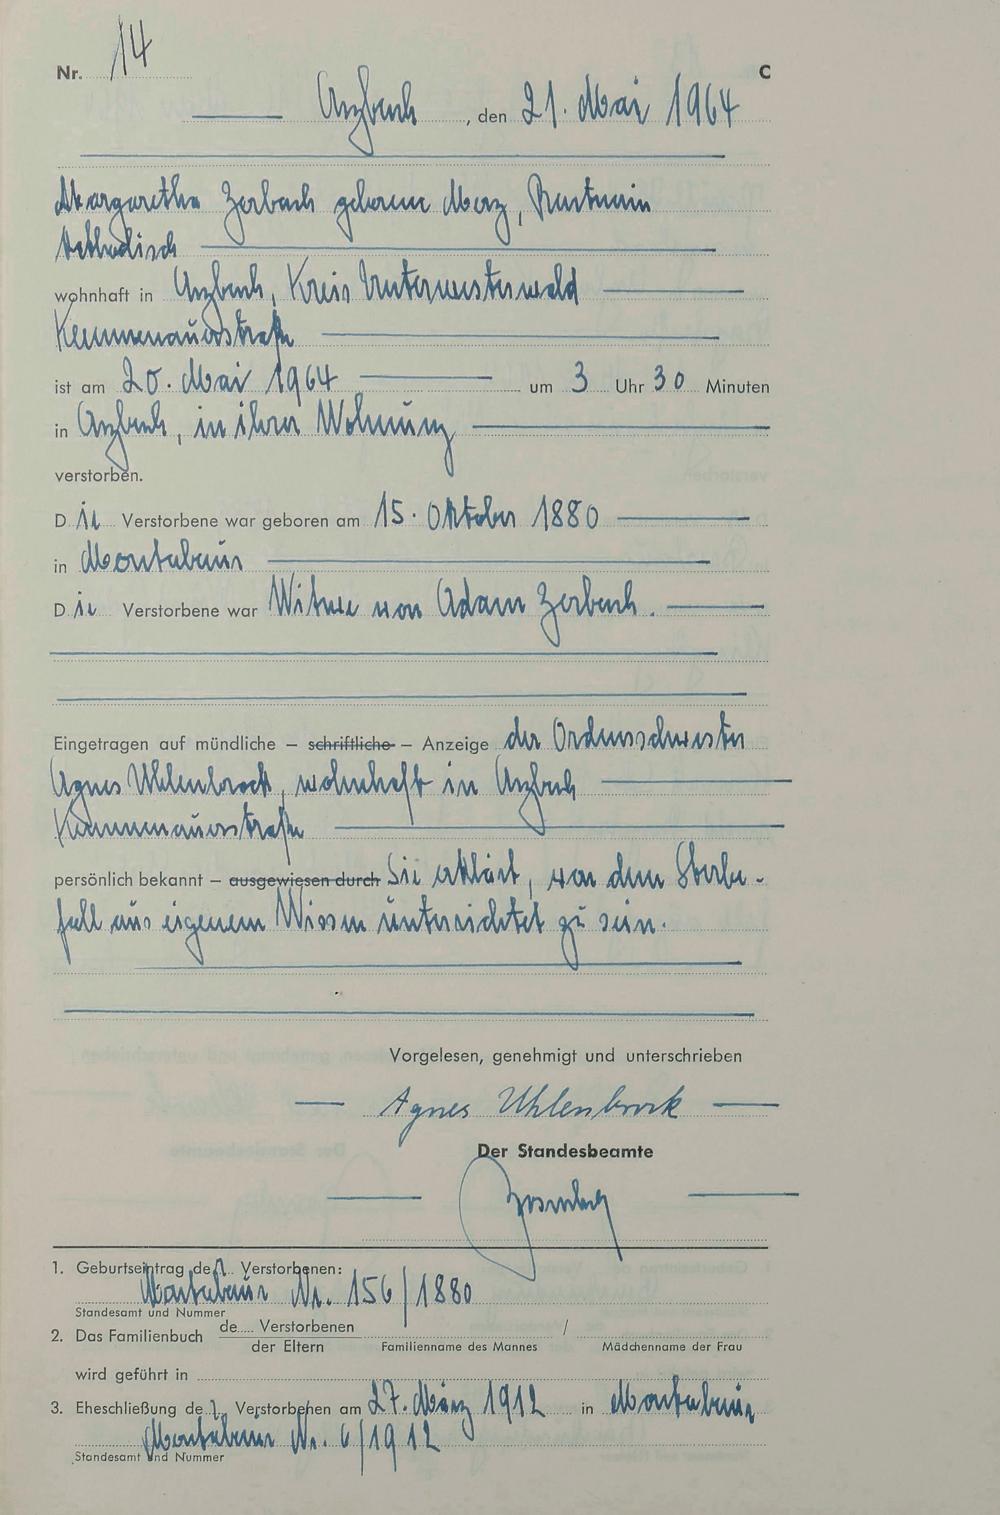 Nr. 14 C
Arzbach, den 21. Mai 1964
Margaretha Zerbach geborene Merz, Rentnerin
katholisch
wohnhaft in Arzbach, Kreis Unterwesterwald
Kemmenauerstraße
ist am 20. Mai 1964 um 3 Uhr 30 Minuten
in Arzbach, in ihrer Wohnung
verstorben.
D ie Verstorbene war geboren am 15. Oktober 1880
in Montabaur
D ie Verstorbene war Witwe von Adam Zerbach.
Eingetragen auf mündliche – schriftliche – Anzeige der Ordensschwester
Agnes Uhlenbrock, wohnhaft in Arzbach
Kemmenauerstraße
persönlich bekannt – ausgewiesen durch Sie erklärt, von dem Sterbe-
fall aus eigenem Wissen unterrichtet zu sein.
Vorgelesen, genehmigt und unterschrieben
Agnes Uhlenbrock
Der Standesbeamte
1. Geburtseintrag der Verstorbenen:
Montabaur Nr. 156/1880
Standesamt und Nummer
2. Das Familienbuch de.... Verstorbenen /
der Eltern Familienname des Mannes Mädchenname der Frau
wird geführt in
3. Eheschließung der Verstorbenen am 27. März 1912 in Montabaur
Montabaur Nr. 6/1912
Standesamt und Nummer